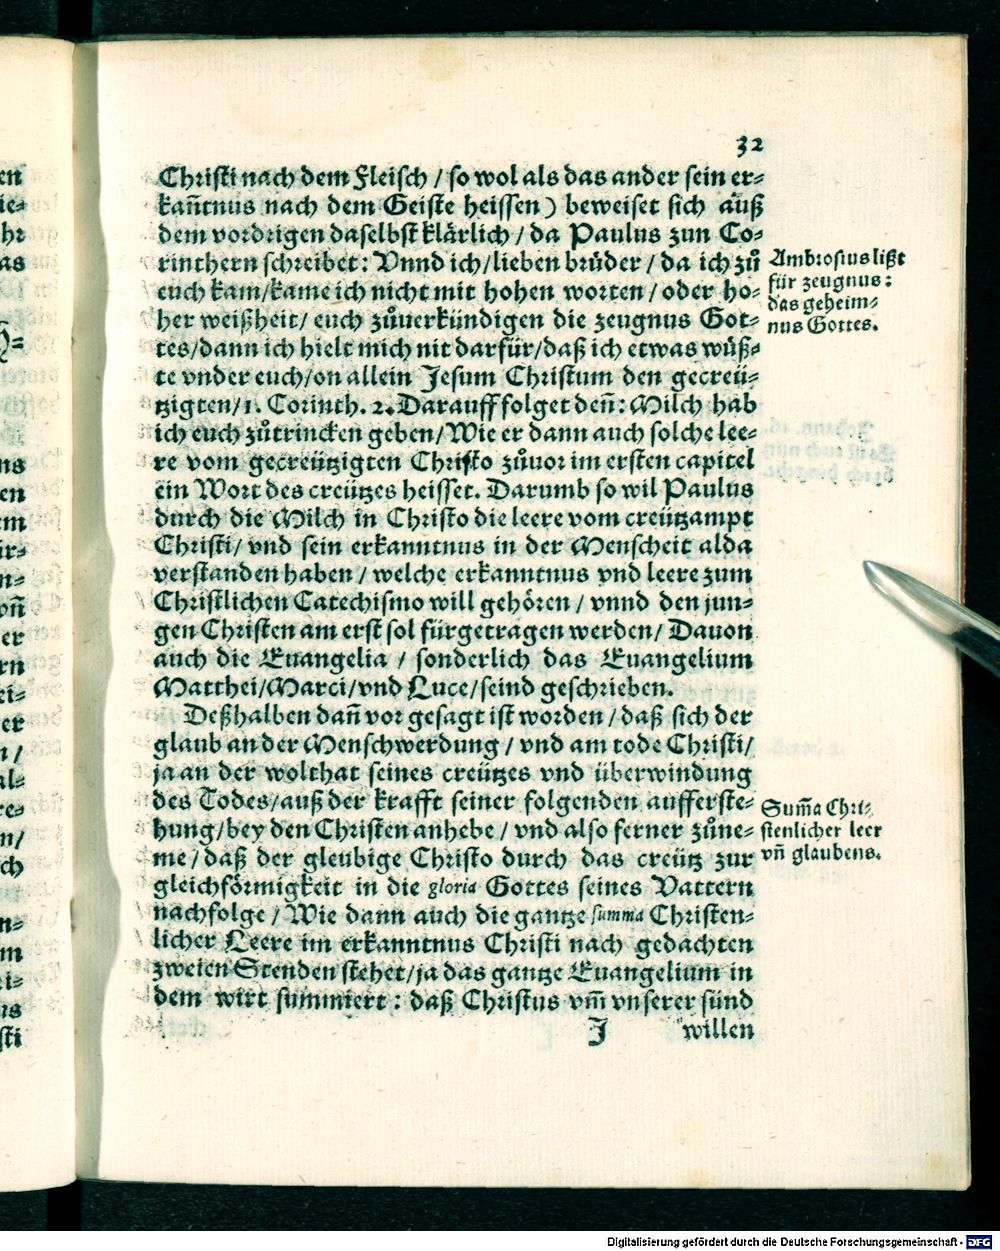 32
Christi nach dem Fleisch / so wol als das ander sein er⸗
kañtnus nach dem Geiste heissen) beweiset sich auß
dem vordrigen daselbst klärlich / da Paulus zun Co⸗
rinthern schreibet: Vnnd ich/lieben brüder / da ich zů
euch kam/kame ich nicht mit hohen worten / oder ho⸗
her weißheit/ euch zůuerkündigen die zeugnus Got⸗
tes/dann ich hielt mich nit darfür/daß ich etwas wüß⸗
te vnder euch/on allein Jesum Christum den gecreü⸗
tzigten/1. Corinth. 2. Darauff folget deñ: Milch hab
ich euch zůtrincken geben/Wie er dann auch solche lee⸗
re vom gecreützigten Christo zůuor im ersten capitel
ein Wort des creützes heisset. Darumb so wil Paulus
durch die Milch in Christo die leere vom creützampt
Christi/ vnd sein erkanntnus in der Menscheit alda
verstanden haben / welche erkanntnus vnd leere zum
Christlichen Catechismo will gehören / vnnd den jun⸗
gen Christen am erst sol fürgetragen werden/ Dauon
auch die Euangelia / sonderlich das Euangelium
Matthei/Marci/vnd Luce/seind geschrieben.
Deßhalben dañ vor gesagt ist worden / daß sich der
glaub an der Menschwerdung / vnd am tode Christi/
ja an der wolthat seines creützes vnd überwindung
des Todes/auß der krafft seiner folgenden aufferste⸗
hung/bey den Christen anhebe / vnd also ferner zůne⸗
me / daß der gleubige Christo durch das creütz zur
gleichförmigkeit in die gloria Gottes seines Vattern
nachfolge / Wie dann auch die gantze summa Christen⸗
licher Leere im erkanntnus Christi nach gedachten
zweien Stenden stehet/ja das gantze Euangelium in
dem wirt summiert : daß Christus vm̃ vnserer sünd
J willen
Ambrosius lißt
für zeugnus:
das geheim⸗
nus Gottes.
Sum̃a Chri⸗
stenlicher leer
vñ glaubens.
en
ie⸗
hr
as
ns
en
em
ir⸗
n⸗
vñ
er
rn
ei⸗
er
n /
al⸗
re⸗
n/
ch
n⸗
m
i⸗
us
sti
Digitalisierung gefördert durch die Deutsche Forschungsgemeinschaft - DFG